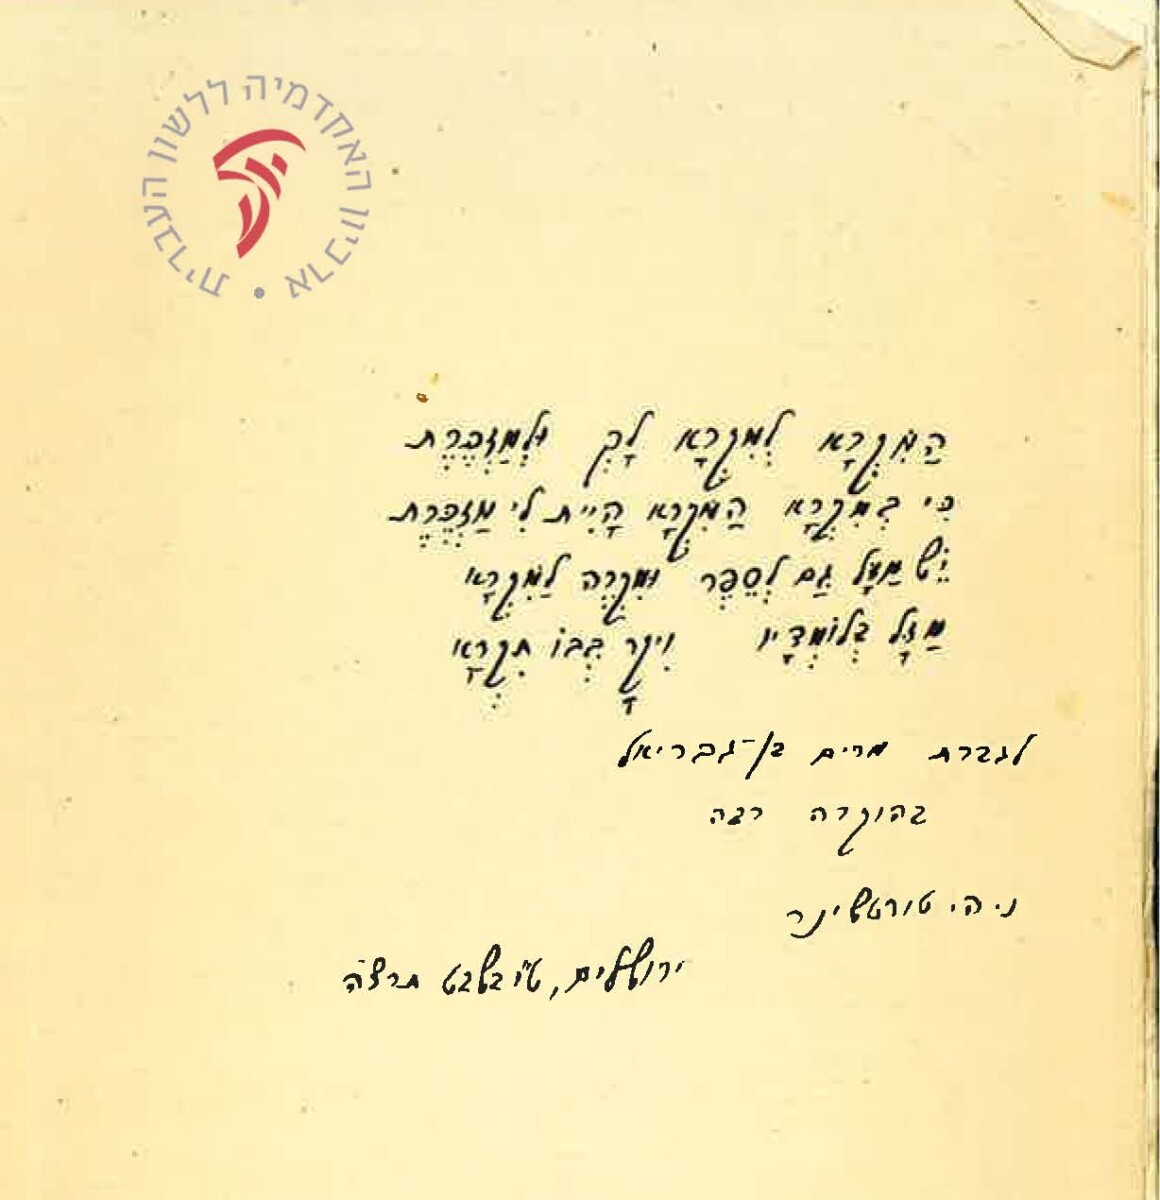 ארכיון האקדמיה ללשון העברית
הַמִּקְרָא לְמִקְרָא לָךְ וּלְמַזְכֶּרֶת
כִּי בְּמִקְרָא הַמִּקְרָא הָיִית לִי מַזְכֶּרֶת
יֵשׁ מַזָּל גַּם לְסֵפֶר וּמִקְרֶה לַמִּקְרָא
מַזָּל בְּלוֹמְדָיו וִיקָר בְּבוֹ תִּקְרָא
לגברת מרים בן-גבריאל
בהוקרה רבה
נ. ה. טורטשינר
ירושלים, ט"ו בשבט תרצ"ה